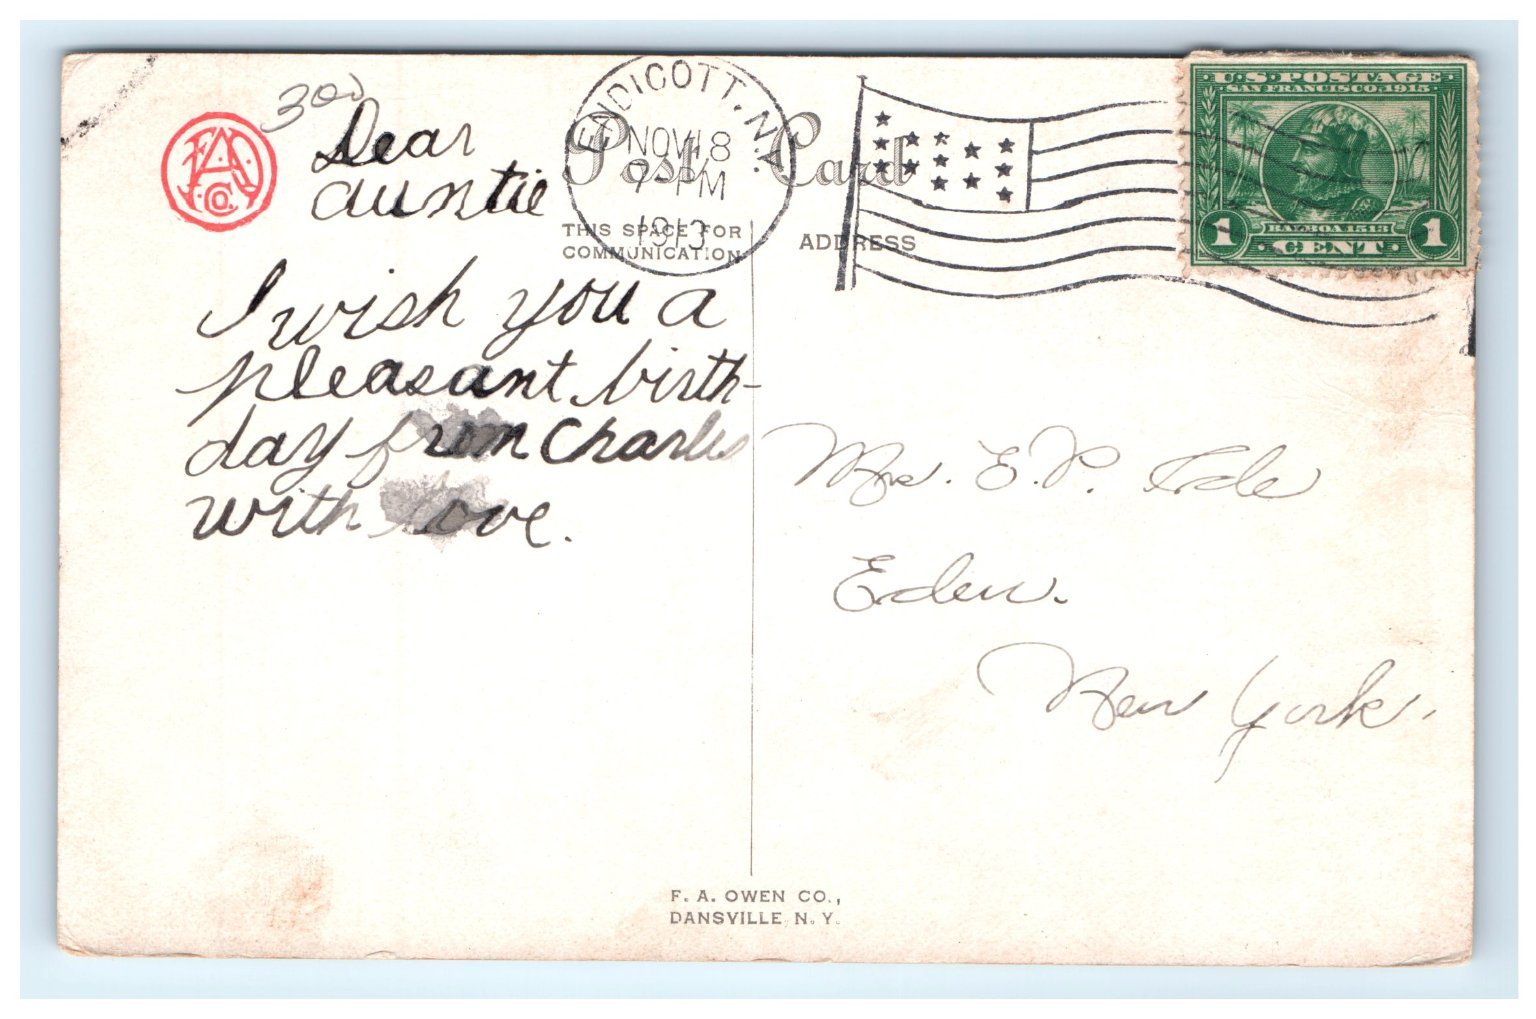 300
Dear
auntie
I wish you a
pleasant birth-
day from Charles
with love.
ENDICOTT, N.Y.
NOV 18
7-PM
1913
Post Card
THIS SPACE FOR
COMMUNICATION
ADDRESS
U.S. POSTAGE
SAN FRANCISCO, 1915
BALBOA 1513
1 CENT 1
Mrs. E. P. Ide
Eden.
New York.
F. A. OWEN CO.,
DANSVILLE, N. Y.
F A O Co.